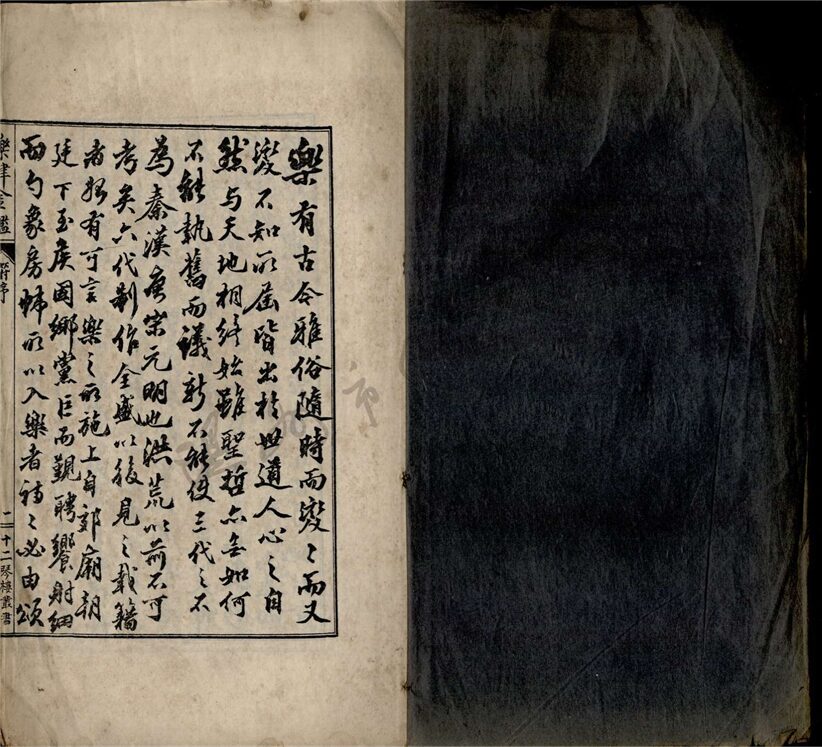 樂有古今雅俗隨時而變〻而又
變不知所屆皆出於世道人心之自
然与天地相終始雖聖哲亦无如何
不能執舊而議新不能使三代之不
為秦漢唐宋元明也洪荒以前不可
考矣六代制作全盛以後見之載籍
者極有可言樂之所施上自郊廟朝
廷下至侯國鄉黨巨而覲聘饗射細
而勺象房帷所以入樂者詩〻必由頌
樂律金鑑
附序
一
十二琴樓叢書